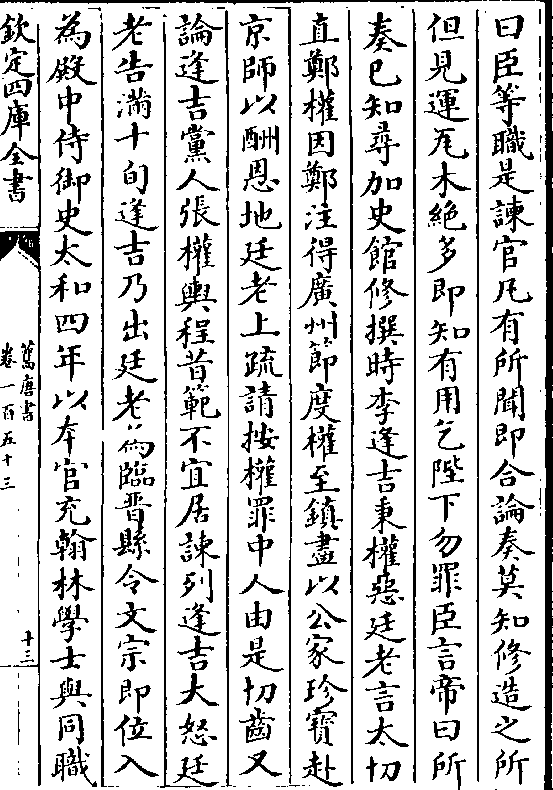 曰臣等職是諫官凡有所聞即合論奏莫知修造之所
但見運瓦木絶多即知有用乞陛下勿罪臣言帝曰所
奏已知尋加史館修撰時李逢吉秉權惡廷老言太切
直鄭權因鄭注得廣州節度權至鎮盡以公家珍寶赴
京師以酬恩地廷老上疏請按權罪中人由是切齒又
論逢吉黨人張權輿程昔範不宜居諫列逢吉大怒廷
老告滿十旬逢吉乃出廷老為臨晉縣令文宗即位入
為殿中侍御史太和四年以本官充翰林學士與同職
欽定四庫全書
舊唐書
卷一百五十三
十三